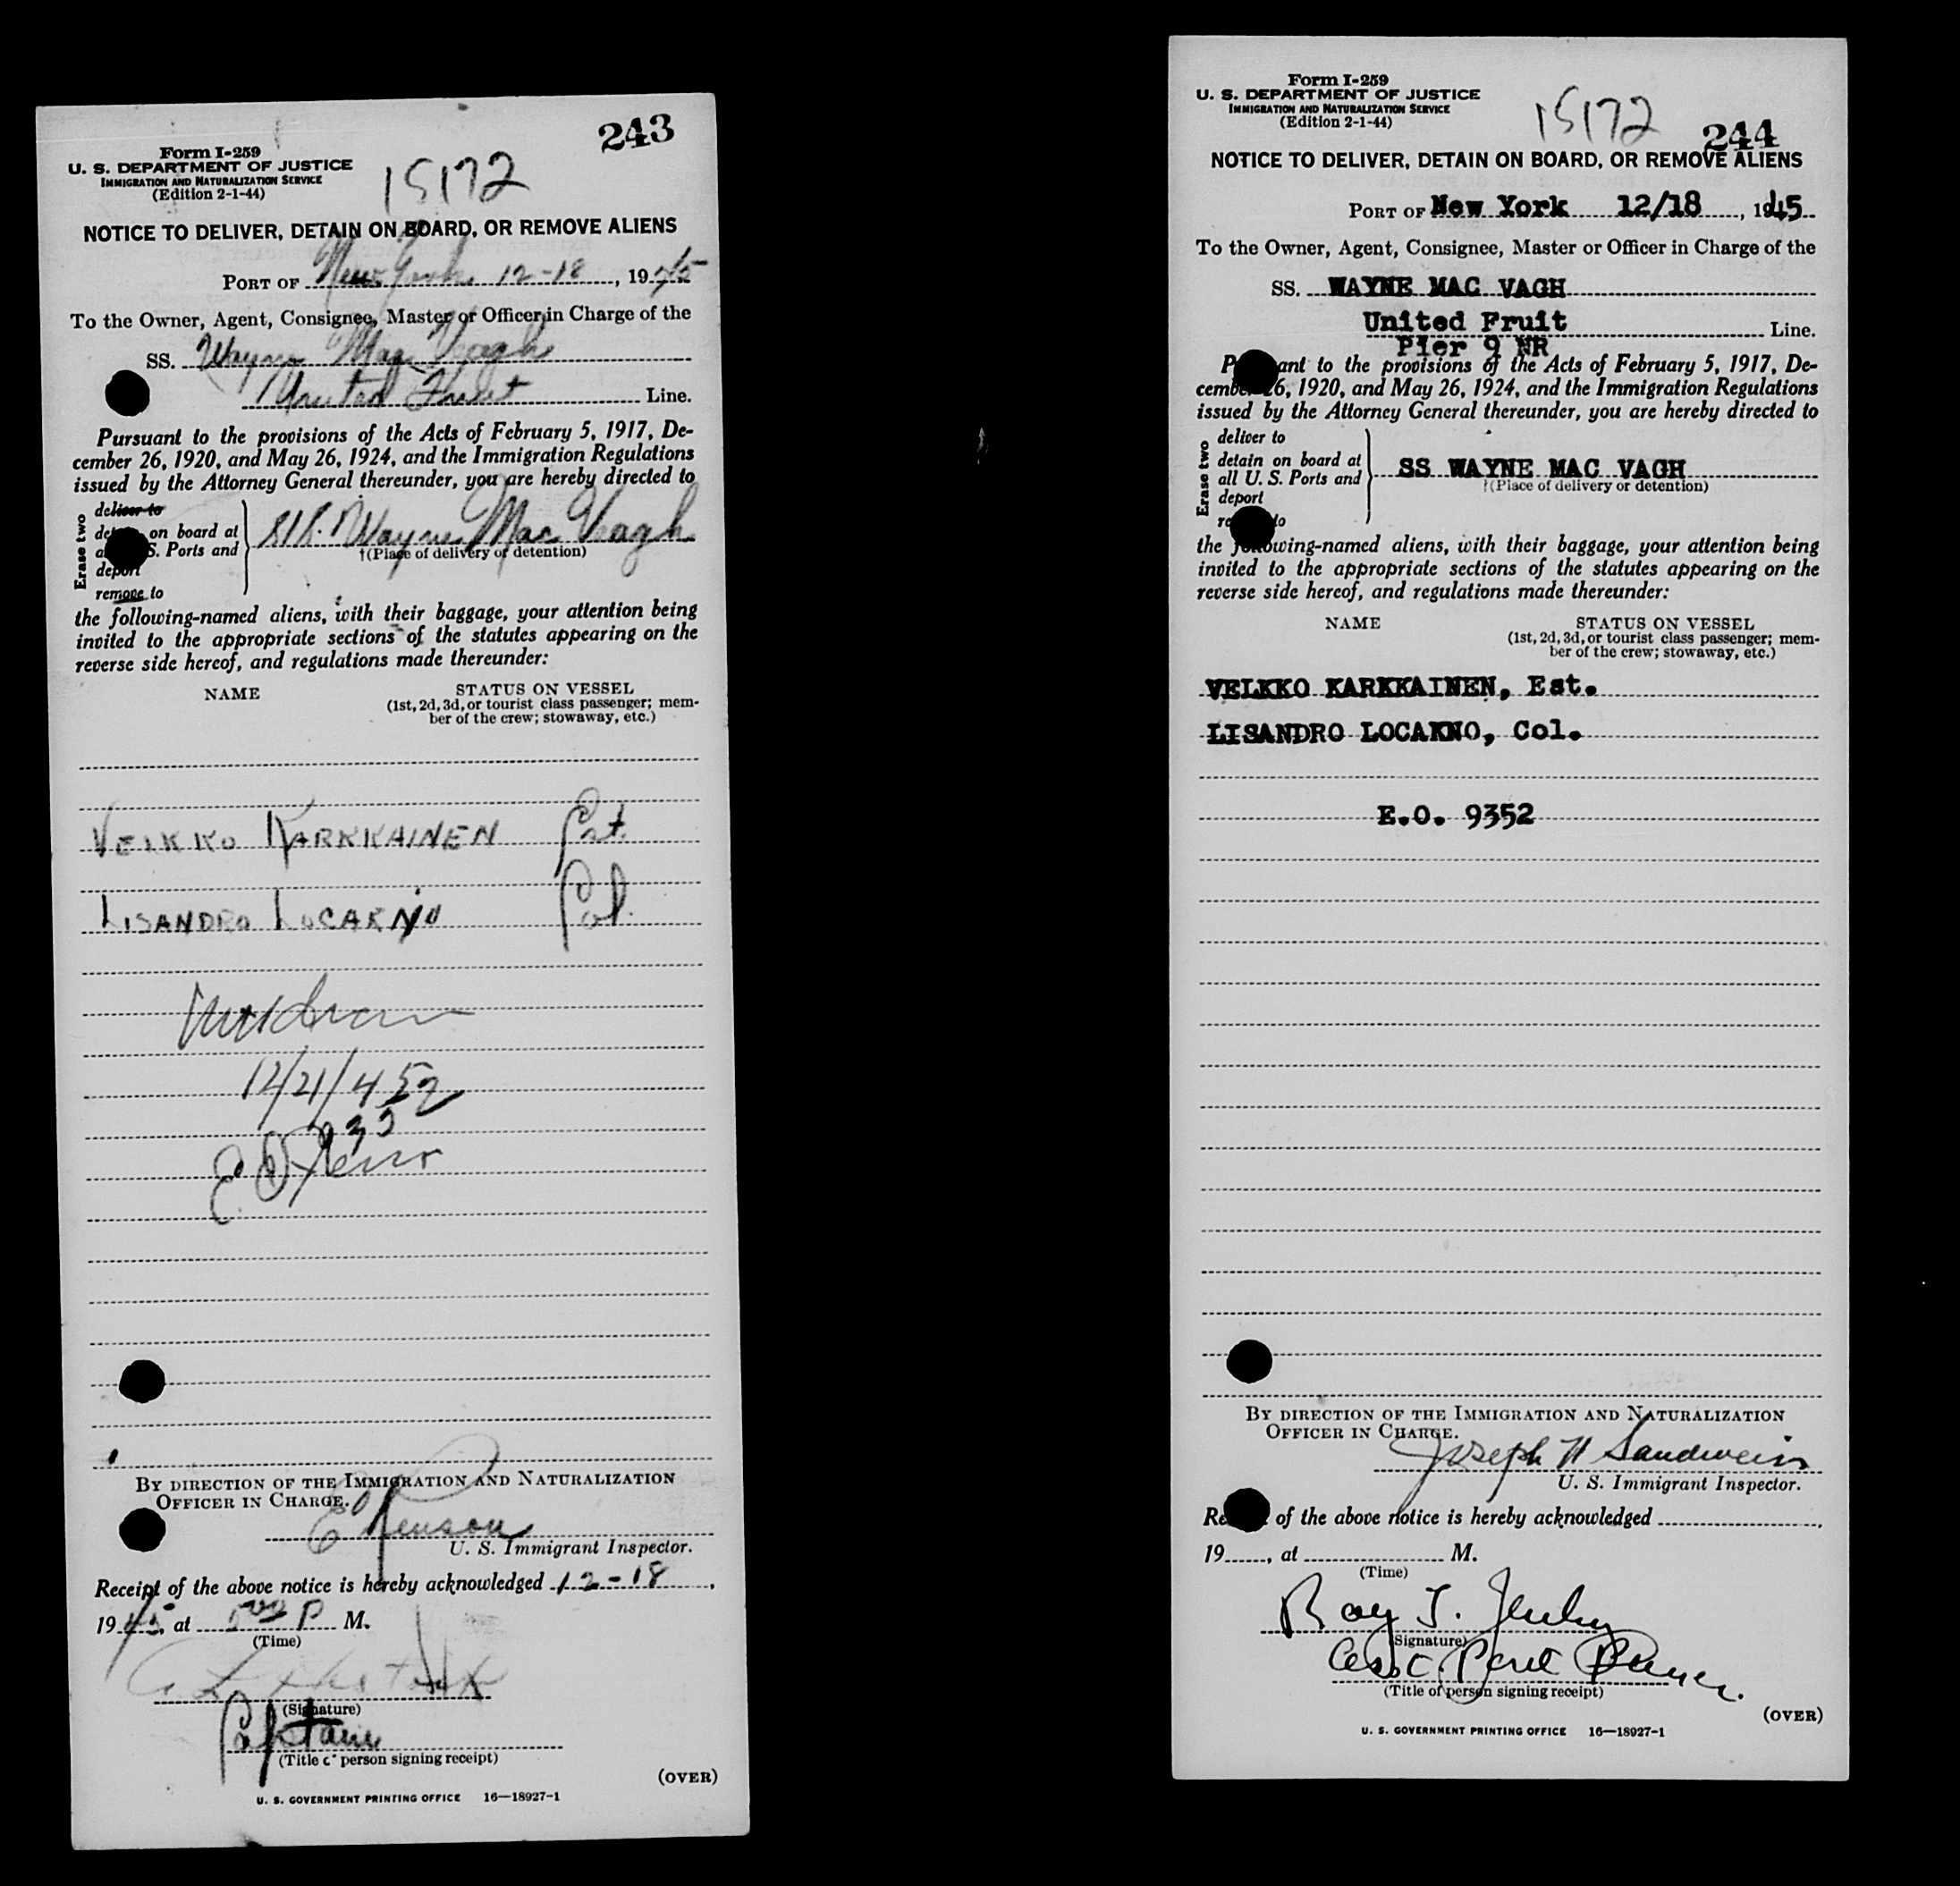 243
Form I-259
U. S. DEPARTMENT OF JUSTICE
IMMIGRATION AND NATURALIZATION SERVICE
(Edition 2-1-44)
15172
NOTICE TO DELIVER, DETAIN ON BOARD, OR REMOVE ALIENS
PORT OF New York 12-18, 1945
To the Owner, Agent, Consignee, Master or Officer in Charge of the
SS. Wayne Mac Veagh
United Fruit Line.
Pursuant to the provisions of the Acts of February 5, 1917, De-
cember 26, 1920, and May 26, 1924, and the Immigration Regulations
issued by the Attorney General thereunder, you are hereby directed to
Erase two
deliver to
on board at
S. Ports and
deport
remove to
Wayne Mac Veagh
†(Place of delivery or detention)
the following-named aliens, with their baggage, your attention being
invited to the appropriate sections of the statutes appearing on the
reverse side hereof, and regulations made thereunder:
NAME
STATUS ON VESSEL
(1st, 2d, 3d, or tourist class passenger; mem-
ber of the crew; stowaway, etc.)
VEIKKO KARKKAINEN Est.
LISANDRO LOCARNO Col.
12/21/45
BY DIRECTION OF THE IMMIGRATION AND NATURALIZATION
OFFICER IN CHARGE.
U. S. Immigrant Inspector.
Receipt of the above notice is hereby acknowledged 12-18,
1945, at 500 P M.
(Time)
(Signature)
Captain
(Title of person signing receipt)
(OVER)
U. S. GOVERNMENT PRINTING OFFICE 16—18927-1
Form I-259
U. S. DEPARTMENT OF JUSTICE
IMMIGRATION AND NATURALIZATION SERVICE
(Edition 2-1-44)
15172
244
NOTICE TO DELIVER, DETAIN ON BOARD, OR REMOVE ALIENS
PORT OF New York 12/18, 1945
To the Owner, Agent, Consignee, Master or Officer in Charge of the
SS. WAYNE MAC VAGH
United Fruit Line.
Pier 9 NR
Pursuant to the provisions of the Acts of February 5, 1917, De-
cember 26, 1920, and May 26, 1924, and the Immigration Regulations
issued by the Attorney General thereunder, you are hereby directed to
Erase two
deliver to
detain on board at
all U. S. Ports and
deport
remove to
SS WAYNE MAC VAGH
†(Place of delivery or detention)
the following-named aliens, with their baggage, your attention being
invited to the appropriate sections of the statutes appearing on the
reverse side hereof, and regulations made thereunder:
NAME
STATUS ON VESSEL
(1st, 2d, 3d, or tourist class passenger; mem-
ber of the crew; stowaway, etc.)
VEIKKO KARKKAINEN, Est.
LISANDRO LOCARNO, Col.
E.O. 9352
BY DIRECTION OF THE IMMIGRATION AND NATURALIZATION
OFFICER IN CHARGE.
Joseph H Sandweiss
U. S. Immigrant Inspector.
Receipt of the above notice is hereby acknowledged
19, at M.
(Time)
Ray J.
(Signature)
(Title of person signing receipt)
(OVER)
U. S. GOVERNMENT PRINTING OFFICE 16—18927-1